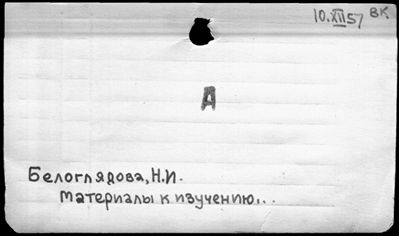 10.XII57 ВК
А
Белоглядова, Н.И.
Материалы к изучению...